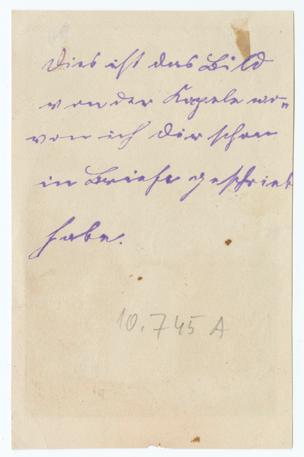 Dies ist das Bild
von der Kapele wo-
von ich Dir schon
in Briefe geschrieb
habe.
10.745 A